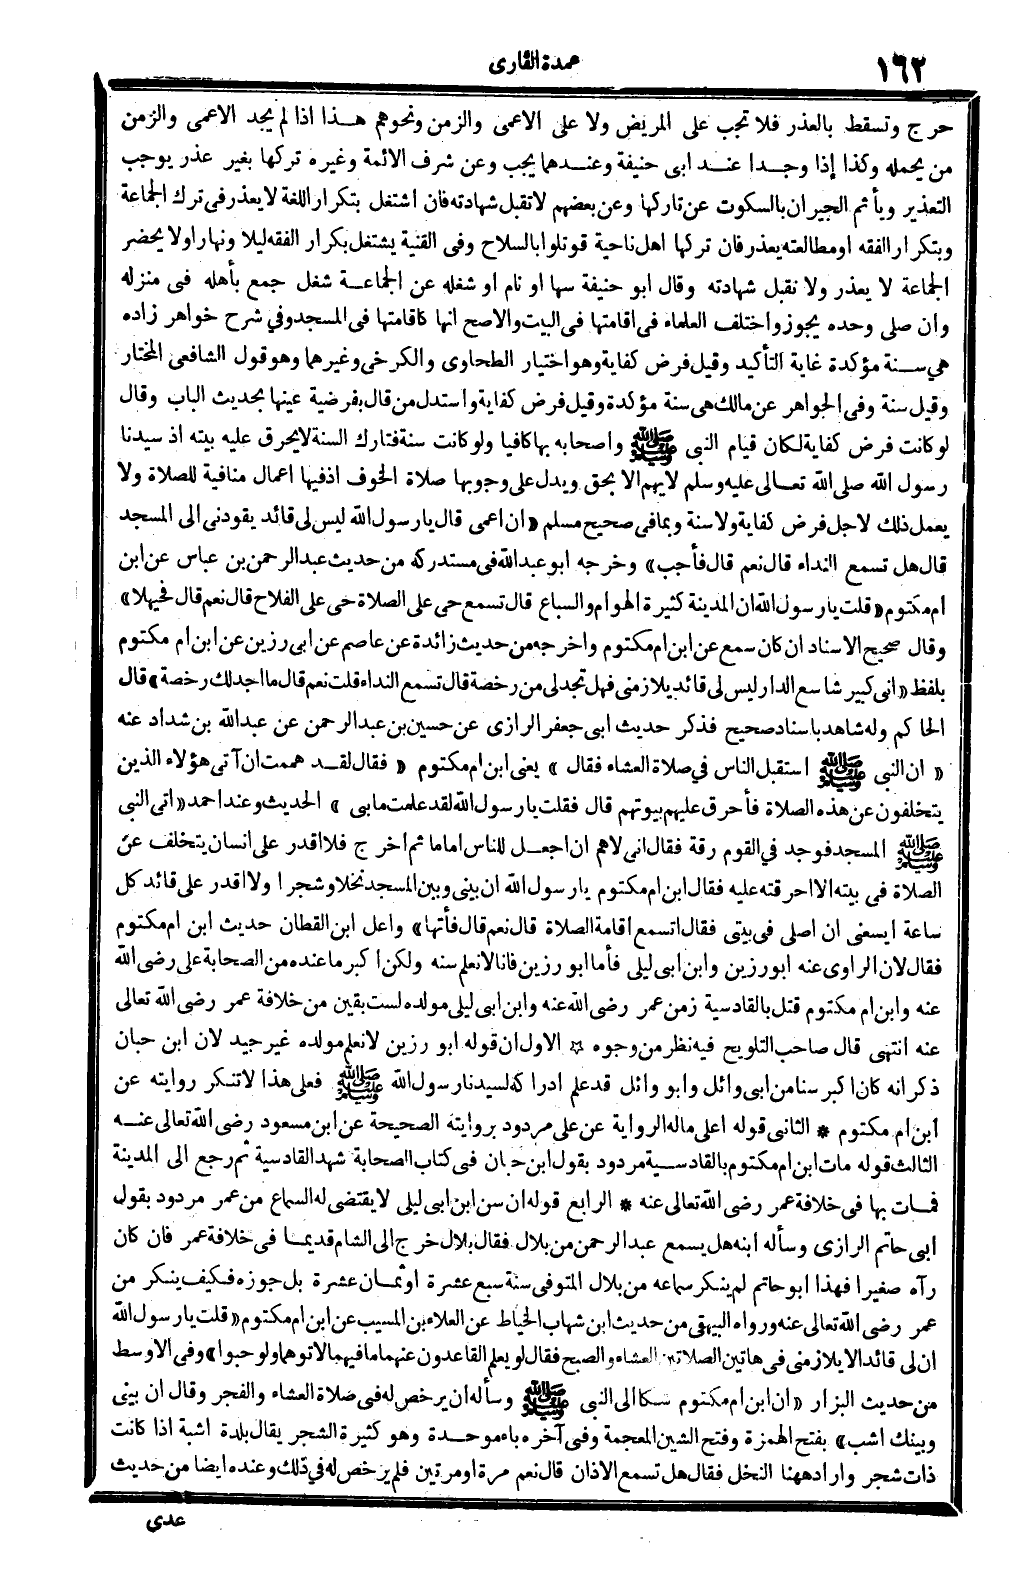 ١٦٢
عمدة القارى
حرج وتسقط بالعذر فلا تجب على المريض ولا على الاعمى والزمن ونحوهم هذا اذا لم يجد الاعمى والزمن
من يحمله وكذا إذا وجدا عند ابى حنيفة وعندهما يجب وعن شرف الائمة وغيره تركها بغير عذر يوجب
التعذير ويأثم الجيران بالسكوت عن تاركها وعن بعضهم لا تقبل شهادته فان اشتغل بتكرار اللغة لا يعذر فى ترك الجماعة
وبتكرار الفقه او مطالعته يعذر فان تركها اهل ناحية قوتلوا بالسلاح وفى القنية يشتغل بكرار الفقه ليلا ونهارا ولا يحضر
الجماعة لا يعذر ولا تقبل شهادته وقال ابو حنيفة سها او نام او شغله عن الجماعة شغل جمع بأهله فى منزله
وان صلى وحده يجوز واختلف العلماء فى اقامتها فى البيت والاصح انها كاقامتها فى المسجد وفي شرح خواهر زاده
هي سنة مؤكدة غاية التأكيد وقيل فرض كفاية وهو اختيار الطحاوى والكرخى وغيرهما وهو قول الشافعى المختار
وقيل سنة وفى الجواهر عن مالك هى سنة مؤكدة وقيل فرض كفاية واستدل من قال بفرضية عينها بحديث الباب وقال
لو كانت فرض كفاية لكان قيام النبى ﷺ واصحابه بها كافيا ولو كانت سنة فتارك السنة لا يحرق عليه بيته اذ سيدنا
رسول الله صلى الله تعالى عليه وسلم لا يهم الا بحق ويدل على وجوبها صلاة الخوف اذ فيها اعمال منافية للصلاة ولا
يعمل ذلك لاجل فرض كفاية ولا سنة وبما فى صحيح مسلم «ان اعمى قال يا رسول الله ليس لى قائد يقودنى الى المسجد
قال هل تسمع النداء قال نعم قال فأجب» وخرجه ابو عبد الله فى مستدركه من حديث عبد الرحمن بن عباس عن ابن
ام مكتوم «قلت يا رسول الله ان المدينة كثيرة الهوام والسباع قال تسمع حى على الصلاة حى على الفلاح قال نعم قال فحيهلا»
وقال صحيح الاسناد ان كان سمع عن ابن ام مكتوم واخرجه من حديث زائدة عن عاصم عن ابى رزين عن ابن ام مكتوم
بلفظ «انى كبير شاسع الدار ليس لى قائد يلازمنى فهل تجد لى من رخصة قال تسمع النداء قلت نعم قال ما اجد لك رخصة» قال
الحاكم وله شاهد باسناد صحيح فذكر حديث ابى جعفر الرازى عن حسين بن عبد الرحمن عن عبد الله بن شداد عنه
« ان النبى ﷺ استقبل الناس في صلاة العشاء فقال » يعنى ابن ام مكتوم « فقال لقد هممت ان آتى هؤلاء الذين
يتخلفون عن هذه الصلاة فأحرق عليهم بيوتهم قال فقلت يا رسول الله لقد علمت ما بى » الحديث وعند احمد «اتى النبى
ﷺ المسجد فوجد في القوم رقة فقال انى لاهم ان اجعل للناس اماما ثم اخرج فلا اقدر على انسان يتخلف عن
الصلاة فى بيته الا احرقته عليه فقال ابن ام مكتوم يا رسول الله ان بينى وبين المسجد نخلا وشجرا ولا اقدر على قائد كل
ساعة ايسعنى ان اصلى فى بيتى فقال اتسمع اقامة الصلاة قال نعم قال فأتها» واعل ابن القطان حديث ابن ام مكتوم
فقال لان الراوى عنه ابو رزين وابن ابى ليلى فأما ابو رزين فانا لا نعلم سنه ولكن اكبر ما عنده من الصحابة على رضى الله
عنه وابن ام مكتوم قتل بالقادسية زمن عمر رضى الله عنه وابن ابى ليلى مولده لست بقين من خلافة عمر رضى الله تعالى
عنه انتهى قال صاحب التلويح فيه نظر من وجوه ☆ الاول ان قوله ابو رزين لا نعلم مولده غير جيد لان ابن حبان
ذكر انه كان اكبر سنا من ابى وائل وابو وائل قد علم ادراكه لسيدنا رسول الله ﷺ فعلى هذا لا تنكر روايته عن
ابن ام مكتوم * الثانى قوله اعلى ماله الرواية عن على مردود بروايته الصحيحة عن ابن مسعود رضى الله تعالى عنه
الثالث قوله مات ابن ام مكتوم بالقادسية مردود بقول ابن حبان فى كتاب الصحابة شهد القادسية ثم رجع الى المدينة
فمات بها فى خلافة عمر رضى الله تعالى عنه * الرابع قوله ان سن ابن ابى ليلى لا يقتضى له السماع من عمر مردود بقول
ابى حاتم الرازى وسأله ابنه هل يسمع عبد الرحمن من بلال فقال بلال خرج الى الشام قديما فى خلافة عمر فان كان
رآه صغيرا فهذا ابو حاتم لم ينكر سماعه من بلال المتوفى سنة سبع عشرة او ثمان عشرة بل جوزه فكيف ينكر من
عمر رضى الله تعالى عنه ورواه البيهقى من حديث ابن شهاب الخياط عن العلاء بن المسيب عن ابن ام مكتوم «قلت يا رسول الله
ان لى قائدا لا يلازمنى فى هاتين الصلاتين العشاء والصبح فقال لو يعلم القاعدون عنهما ما فيهما لاتوهما ولو حبوا» وفى الاوسط
من حديث البزار «ان ابن ام مكتوم شكا الى النبى ﷺ وسأله ان يرخص له فى صلاة العشاء والفجر وقال ان بينى
وبينك اشب» بفتح الهمزة وفتح الشين المعجمة وفى آخره باء موحدة وهو كثيرة الشجر يقال بلدة اشبة اذا كانت
ذات شجر واراد ههنا النخل فقال هل تسمع الاذان قال نعم مرة او مرتين فلم يرخص له في ذلك وعنده ايضا من حديث
عدى